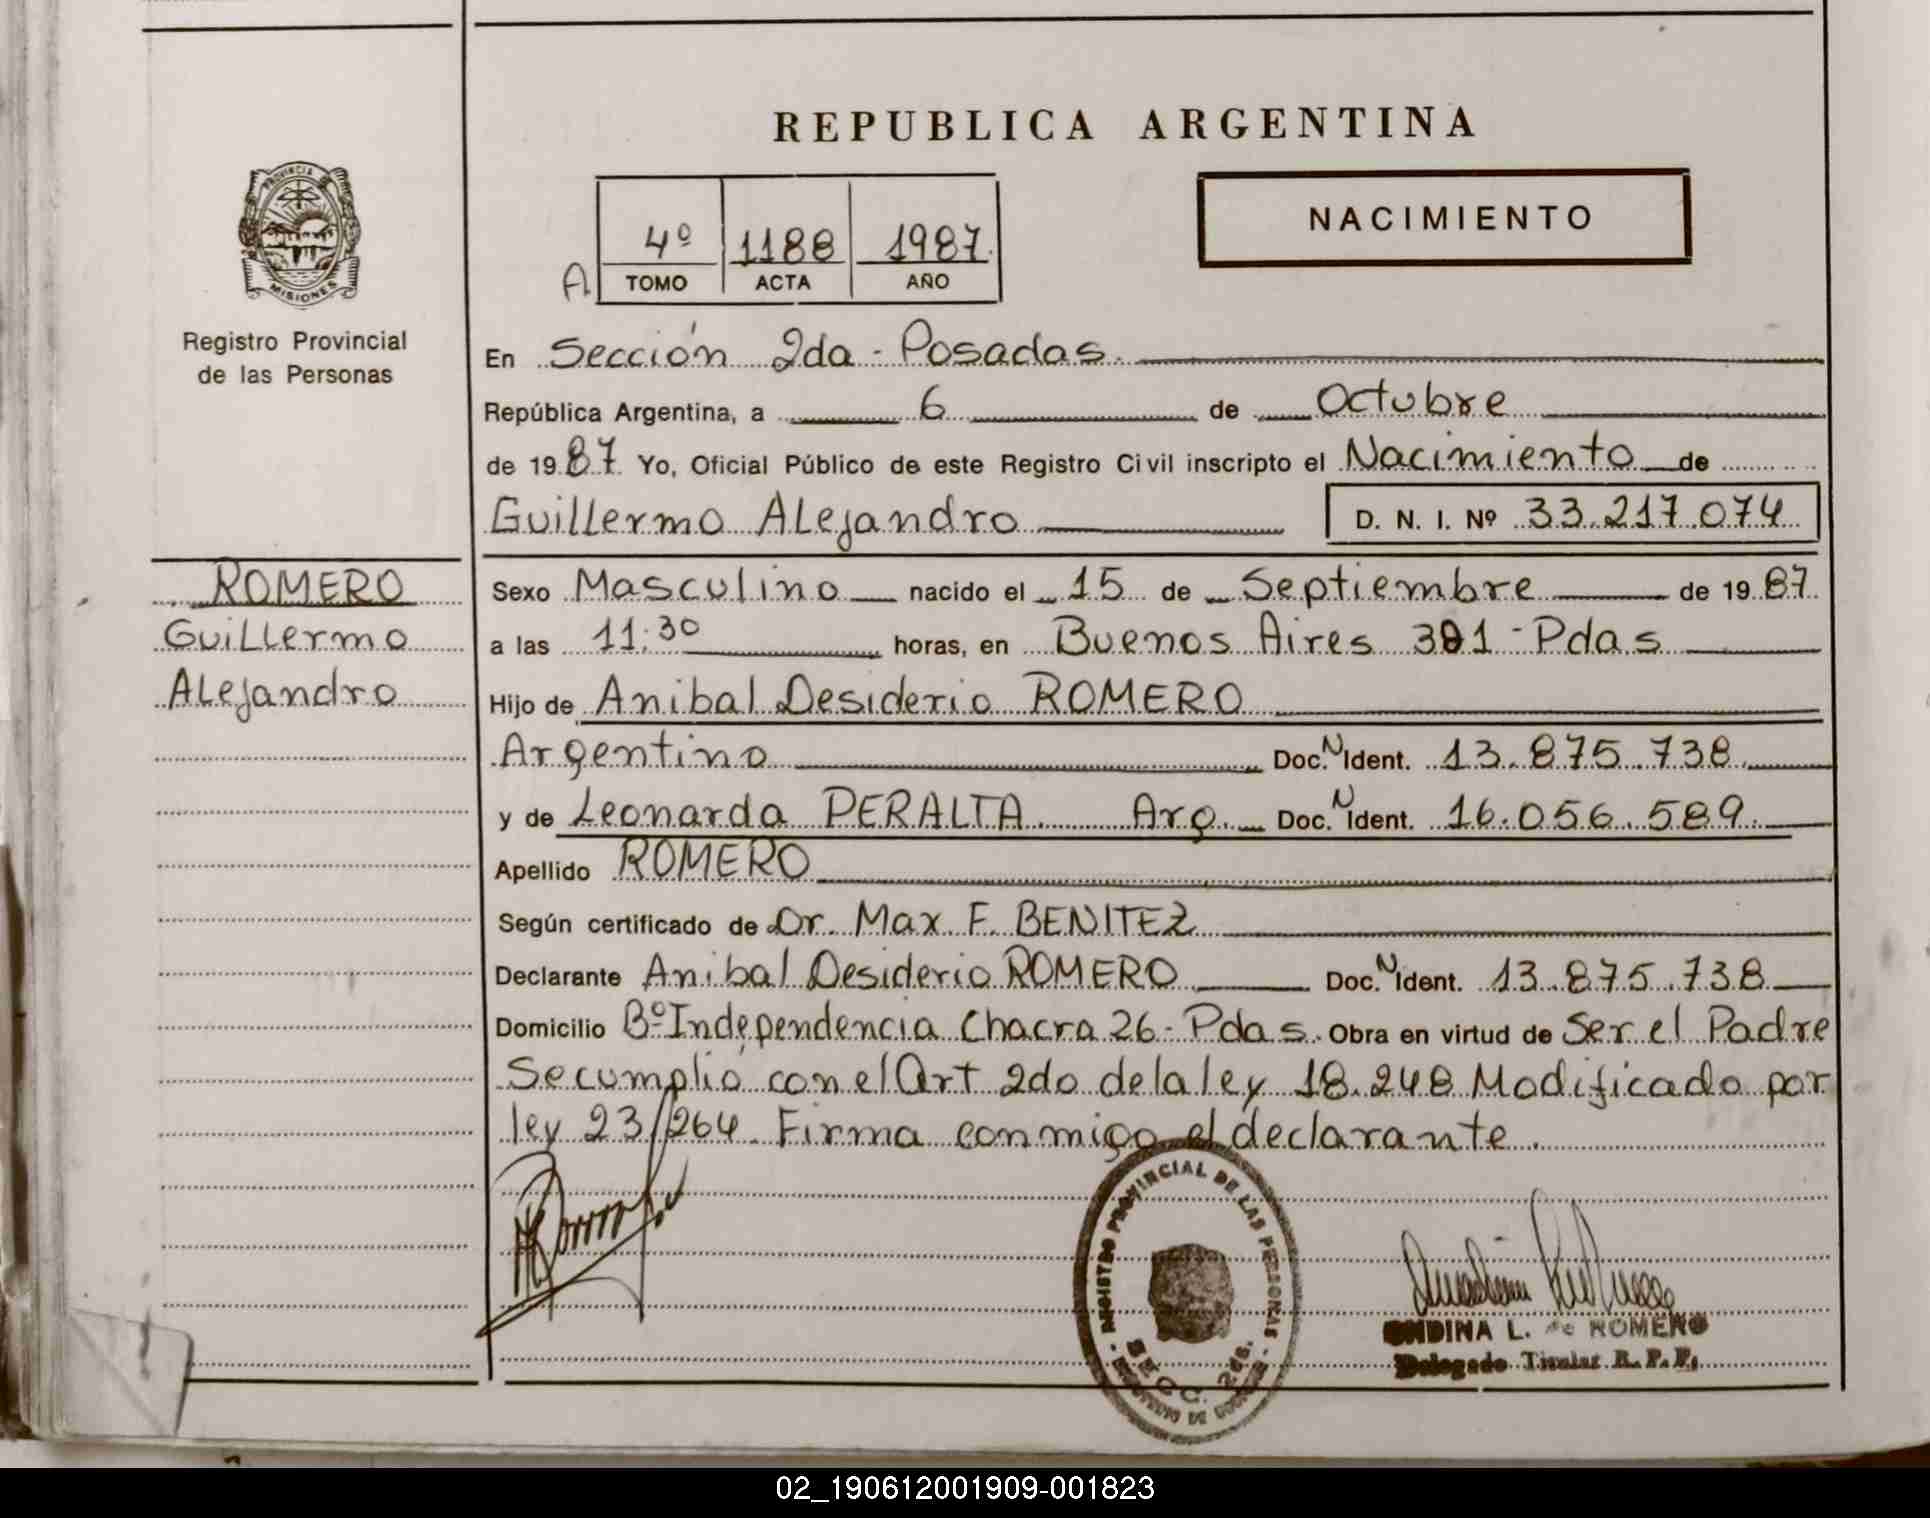 REPUBLICA ARGENTINA
PROVINCIA DE
MISIONES
Registro Provincial
de las Personas
NACIMIENTO
A
4º 1188 1987
TOMO ACTA AÑO
En Sección 2da - Posadas.
República Argentina, a 6 de Octubre
de 1987 Yo, Oficial Público de este Registro Civil inscripto el Nacimiento de
Guillermo Alejandro D. N. I. Nº 33.217.074
ROMERO
Guillermo
Alejandro
Sexo Masculino nacido el 15 de Septiembre de 1987
a las 11:30 horas, en Buenos Aires 301 - Pdas
Hijo de Anibal Desiderio ROMERO
Argentino Doc. N Ident. 13.875.738
y de Leonarda PERALTA Arg. Doc. N Ident. 16.056.589
Apellido ROMERO
Según certificado de Dr. Max F. BENITEZ
Declarante Anibal Desiderio ROMERO Doc. N Ident. 13.875.738
Domicilio Bº Independencia Chacra 26 - Pdas. Obra en virtud de Ser el Padre
Se cumplió con el Art 2do de la ley 18.248 Modificado por
ley 23/264. Firma conmigo el declarante.
REGISTRO PROVINCIAL DE LAS PERSONAS
SECC. 2da.
ONDINA L. de ROMERO
Delegado Titular R. P. P.
02_190612001909-001823